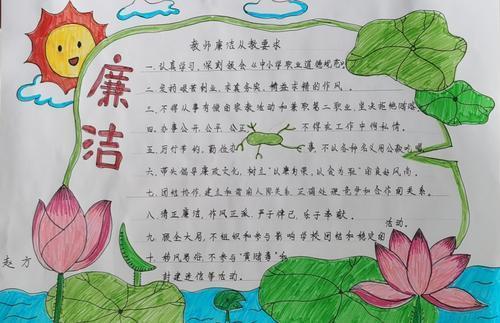 廉洁
教师廉洁从教要求
一.认真学习,深刻领会《中小学职业道德规范》
二.发扬艰苦创业,求真务实,精益求精的作风。
三.不得从事有偿家教活动和兼职第二职业,坚决拒绝赌博
四.办事公开.公平.公正 不得在工作中徇私情。
五.厉行节约,勤俭办 事,不以各种名义用公款吃喝
六.带头倡导廉政文化,树立"以廉为荣,以贪为耻"的良好风尚。
七.团结协作,建立和谐的人际关系,正确处理竞争和合作的关系。
八.清正廉洁,作风正派,严于律己,乐于奉献。
九.顾全大局,不组织和参与影响学校团结和稳定的活动。
十.移风易俗,不参与"黄赌毒"和
封建迷信等活动。
赵方